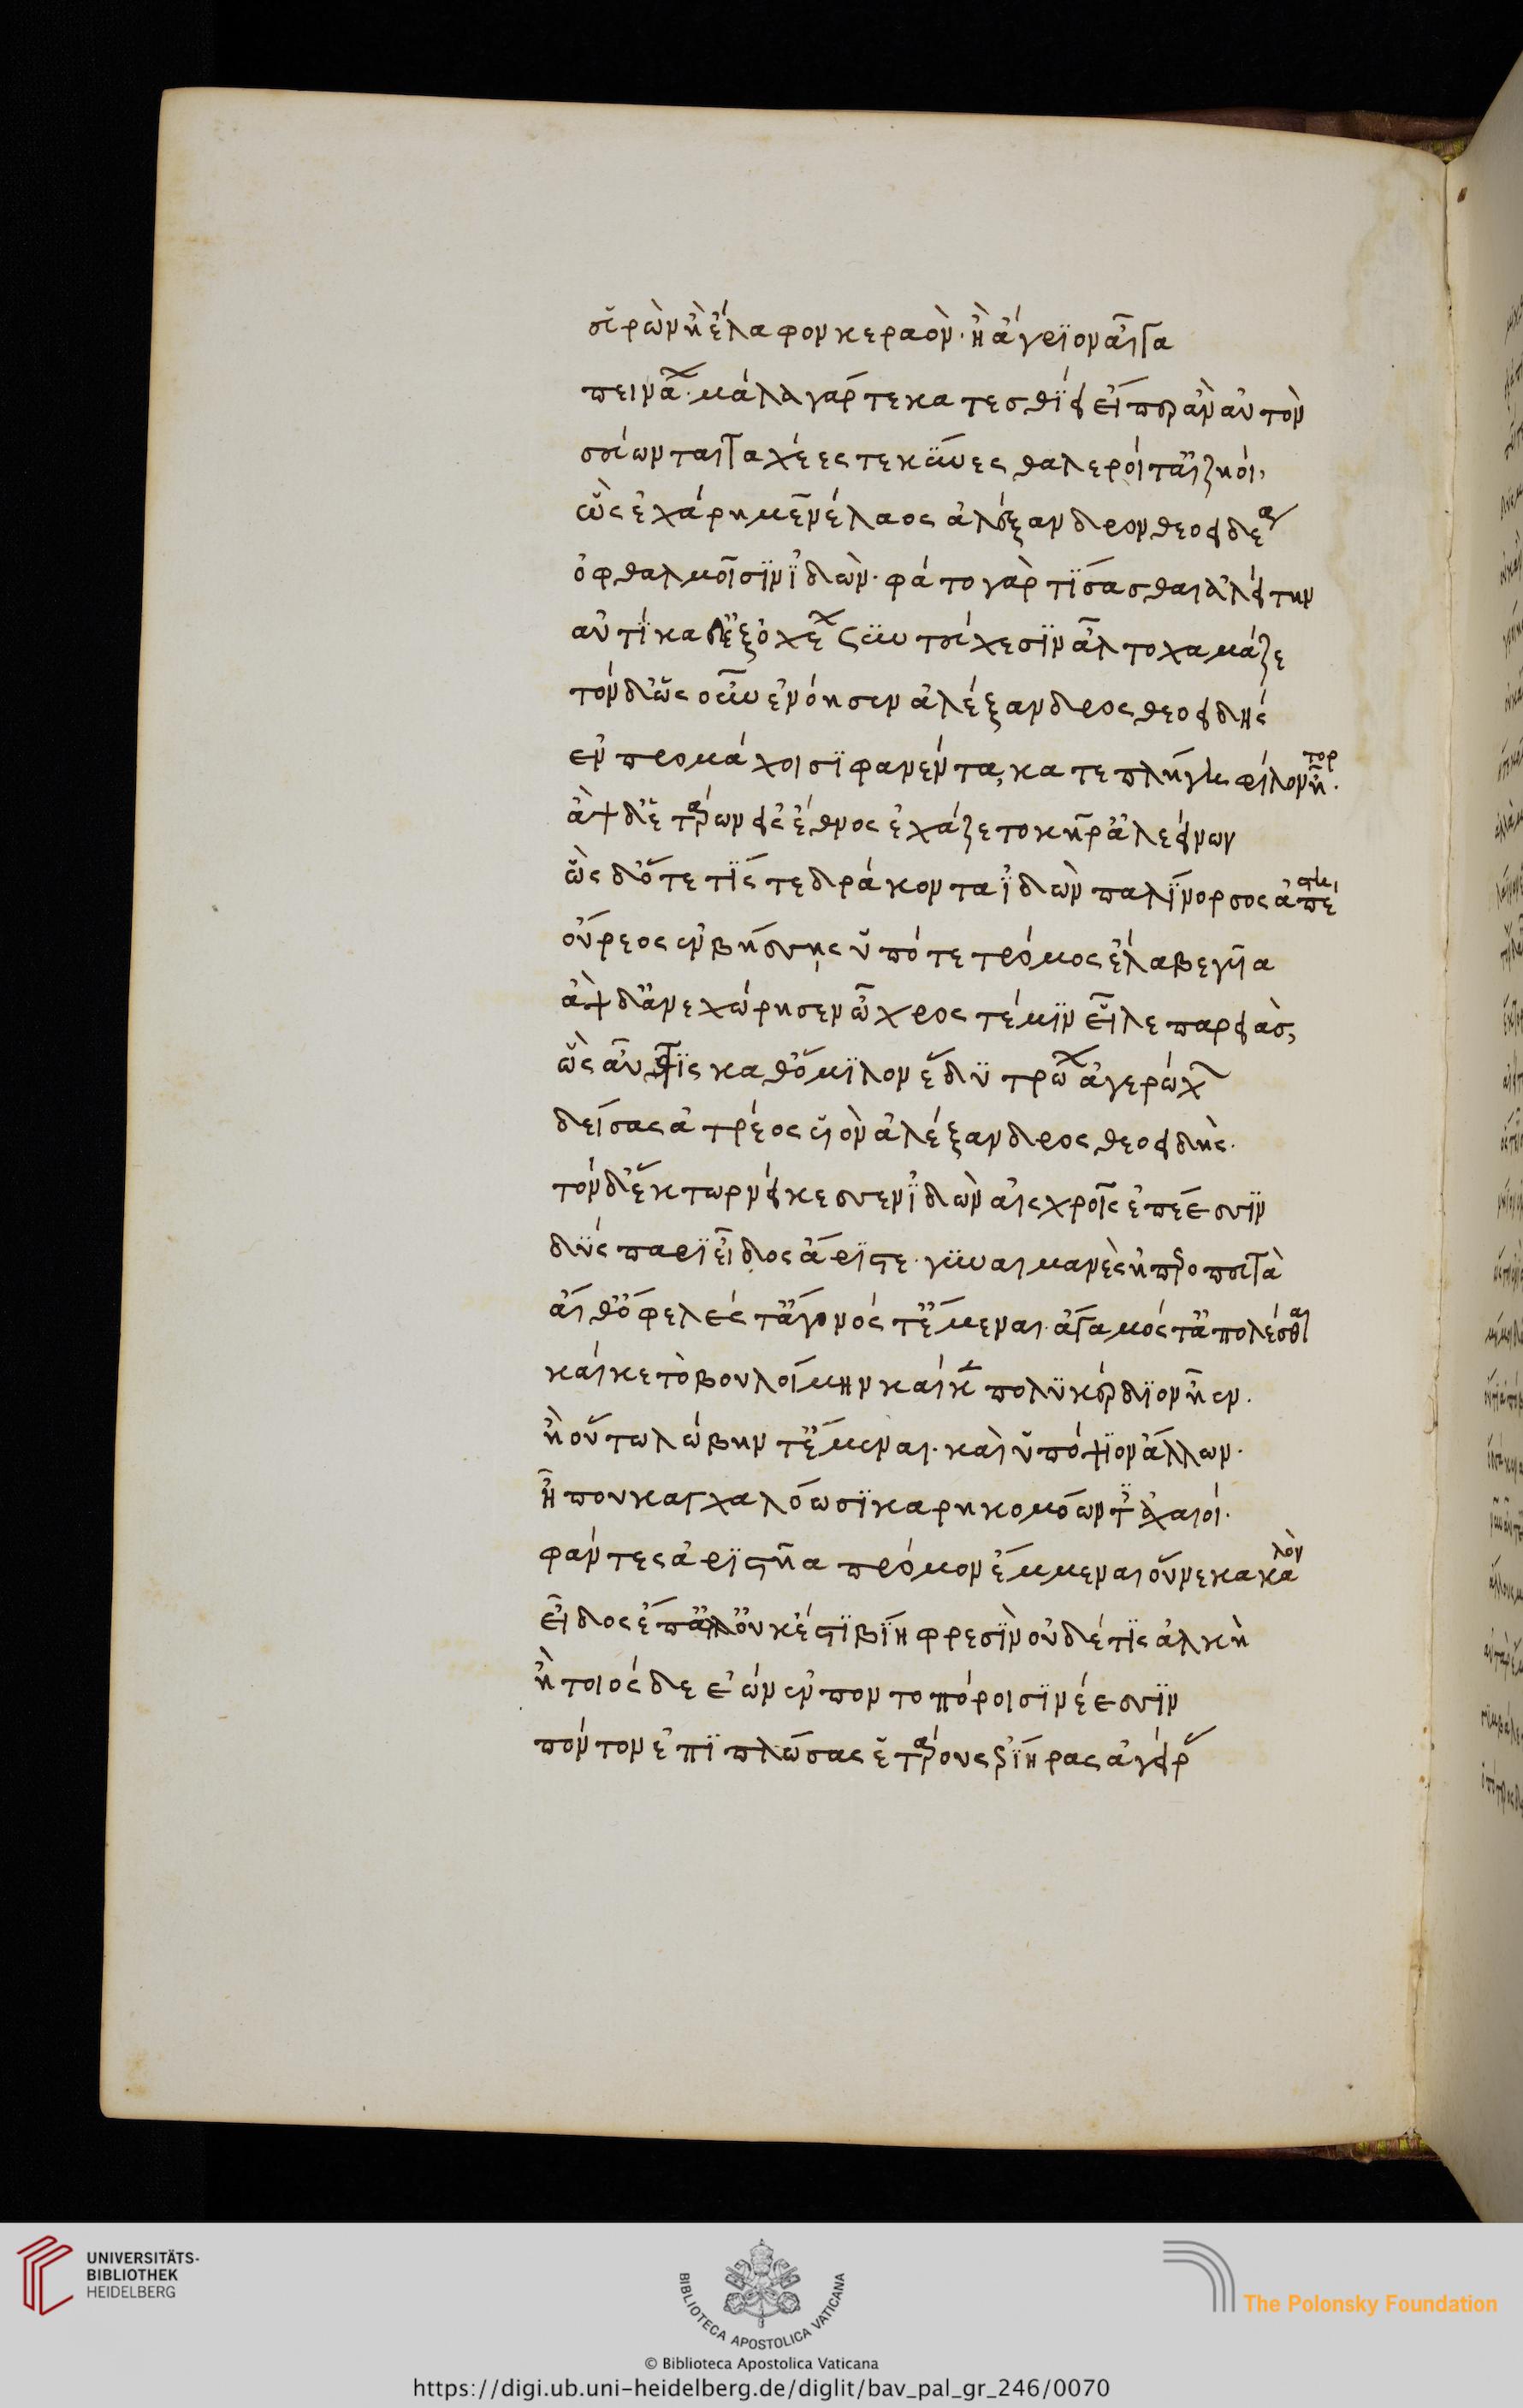 εὑρὼν ἢ ἔλαφον κεραὸν· ἢ ἄγριον αἶγα
πεινάων· μάλα γάρ τε κατεσθίει εἴπερ ἂν αὐτὸν
σεύωνται ταχέες τε κύνες θαλεροί τ' αἰζηοί,
ὣς ἐχάρη μενέλαος ἀλέξανδρον θεοειδέα
ὀφθαλμοῖσιν ἰδών· φάτο γὰρ τίσασθαι ἀλείτην
αὐτίκα δ' ἐξ ὀχέων σὺν τεύχεσιν ἆλτο χαμάζε
τὸν δ' ὡς οὖν ἐνόησεν ἀλέξανδρος θεοειδής
ἐν προμάχοισι φανέντα, κατεπλήγη φίλον ἦτορ·
ἂψ δ' ἑτάρων εἰς ἔθνος ἐχάζετο κῆρ' ἀλεείνων
ὡς δ' ὅτε τίς τε δράκοντα ἰδὼν παλίνορσος ἀπέστη
οὔρεος ἐν βήσσῃς ὑπό τε τρόμος ἔλαβε γυῖα
ἂψ δ' ἀνεχώρησεν ὦχρος τέ μιν εἷλε παρειάς,
ὣς αὖθις καθ' ὅμιλον ἔδυ τρώων ἀγερώχων
δείσας ἀτρέος υἱὸν ἀλέξανδρος θεοειδής.
τὸν δ' ἕκτωρ νείκεσσεν ἰδὼν αἰσχροῖς ἐπέεσσιν
δύσπαρι εἶδος ἄριστε· γυναιμανὲς ἠπεροπευτὰ
αἴθ' ὄφελες τ' ἄγονός τ' ἔμεναι· ἄγαμός τ' ἀπολέσθαι
καί κε τὸ βουλοίμην καί κεν πολὺ κέρδιον ἦεν.
ἢ οὕτω λώβην τ' ἔμεναι· καὶ ὑπόψιον ἄλλων·
ἦ που καγχαλόωσι καρηκομόωντες ἀχαιοί.
φάντες ἀριστῆα πρόμον ἔμμεναι οὕνεκα καλὸν
εἶδος ἔπ' ἀλλ' οὐκ ἔστι βίη φρεσὶν οὐδέ τις ἀλκὴ
ἦ τοιόσδε ἐὼν ἐν ποντοπόροισι νέεσσιν
πόντον ἐπιπλώσας ἑτάρους ἐρίηρας ἀγείρας
UNIVERSITÄTS-
BIBLIOTHEK
HEIDELBERG
BIBLIOTECA APOSTOLICA VATICANA
The Polonsky Foundation
© Biblioteca Apostolica Vaticana
https://digi.ub.uni-heidelberg.de/diglit/bav_pal_gr_246/0070